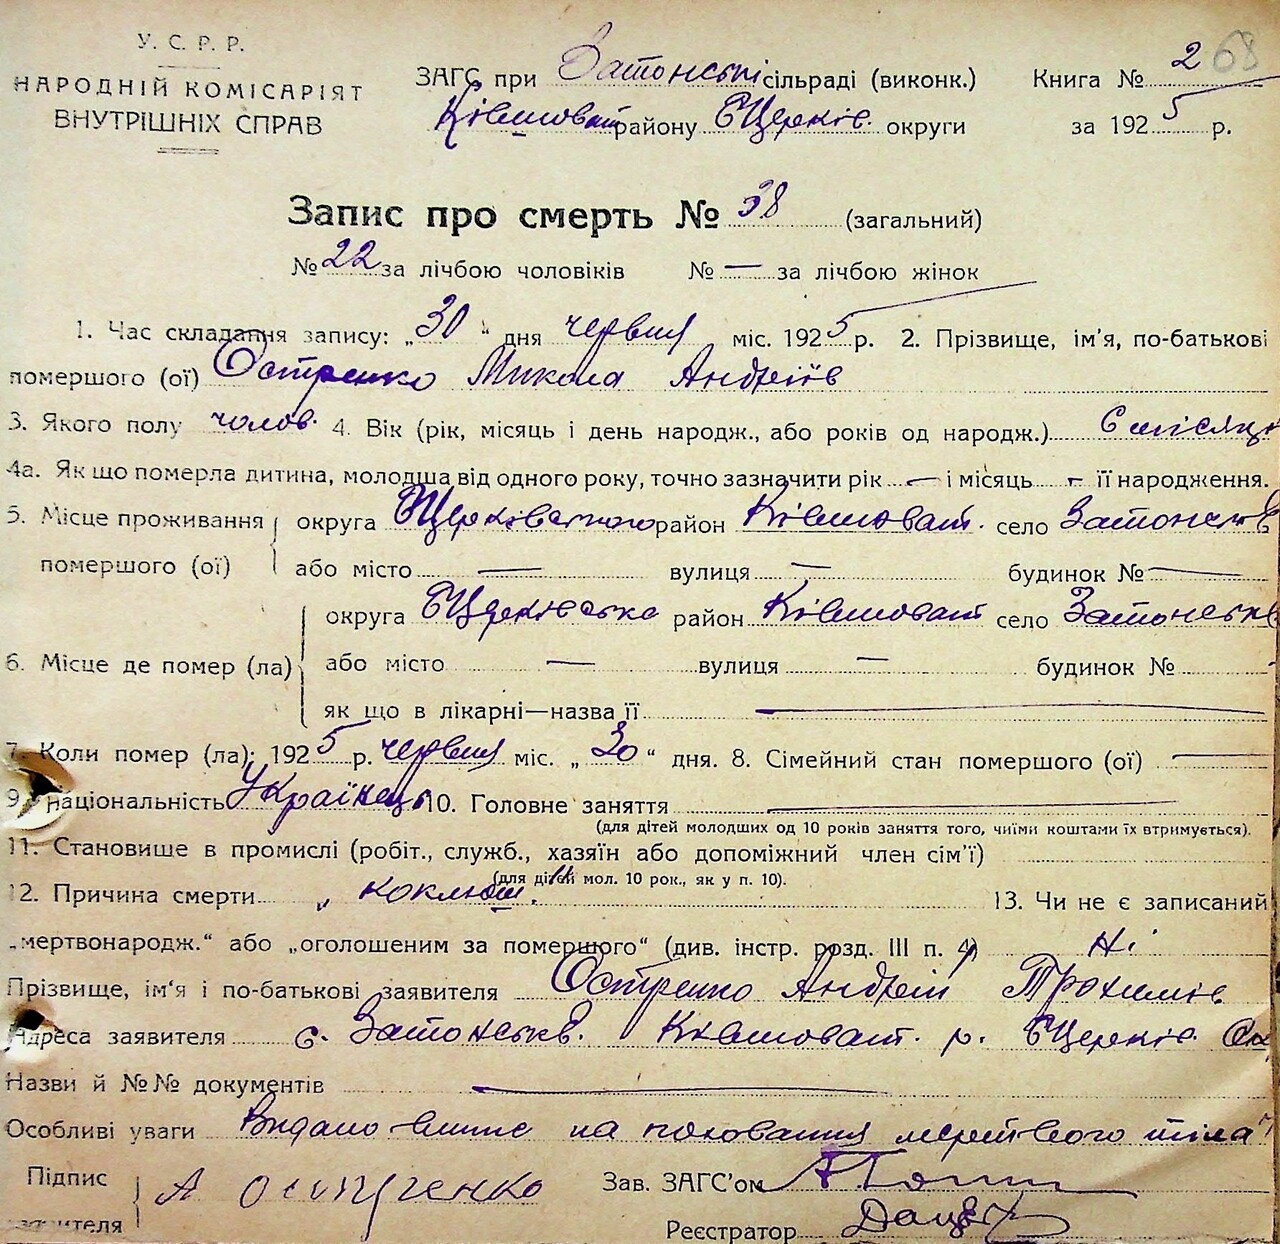 У. С. Р. Р.
НАРОДНІЙ КОМІСАРІЯТ
ВНУТРІШНІХ СПРАВ
ЗАГС при Затонські сільраді (виконк.)
Ківшоват району БЦерків. округи
Книга № 2 68
за 1925 р.
Запис про смерть № 38 (загальний)
№ 22 за лічбою чоловіків № — за лічбою жінок
1. Час складання запису: „30“ дня червня міс. 1925 р. 2. Прізвище, ім'я, по-батькові
помершого (ої) Остренко Микола Андріїв
3. Якого полу чолов. 4. Вік (рік, місяць і день народж., або років од народж.) 6 місяці
4а. Як що померла дитина, молодша від одного року, точно зазначити рік — і місяць — її народження.
5. Місце проживання помершого (ої) округа БЦерківського район Ківшоват. село Затонськ
або місто — вулиця — будинок № —
6. Місце де помер (ла) округа БЦерківська район Ківшоват село Затонське
або місто — вулиця — будинок №
як що в лікарні—назва її —
7. Коли помер (ла): 1925 р. червня міс. „30“ дня. 8. Сімейний стан помершого (ої) —
9. Національність Українець 10. Головне заняття —
(для дітей молодших од 10 років заняття того, чиїми коштами їх втримується).
11. Становише в промислі (робіт., служб., хазяїн або допоміжний член сім'ї)
(для дітей мол. 10 рок., як у п. 10).
12. Причина смерти „коклюш“. 13. Чи не є записаний
„мертвонародж.“ або „оголошеним за помершого“ (див. інстр. розд. III п. 4) Ні
Прізвище, ім'я і по-батькові заявителя Остренко Андрій Трохимів
Адреса заявителя с. Затонськ. Ківшоват. р. БЦерків. Ок
Назви й №№ документів —
Особливі уваги Видано випис на поховання мертвого тіла
Підпис заявителя А Остренко
Зав. ЗАГС'ом
Реєстратор